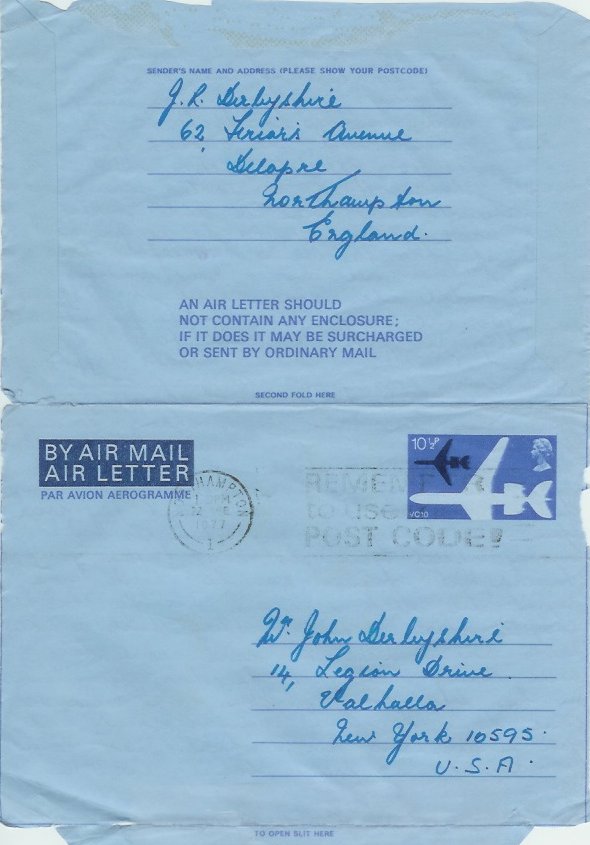 SENDER'S NAME AND ADDRESS (PLEASE SHOW YOUR POSTCODE)
J. R. Derbyshire
62 Friars Avenue
Delapre
Northampton
England.
AN AIR LETTER SHOULD
NOT CONTAIN ANY ENCLOSURE;
IF IT DOES IT MAY BE SURCHARGED
OR SENT BY ORDINARY MAIL
SECOND FOLD HERE
BY AIR MAIL
AIR LETTER
PAR AVION AEROGRAMME
10½P
VC10
NORTHAMPTON
1977
1
REMEMBER
to use
POST CODE!
Mr. John Derbyshire
14, Legion Drive
Valhalla
New York 10595.
U.S.A.
TO OPEN SLIT HERE